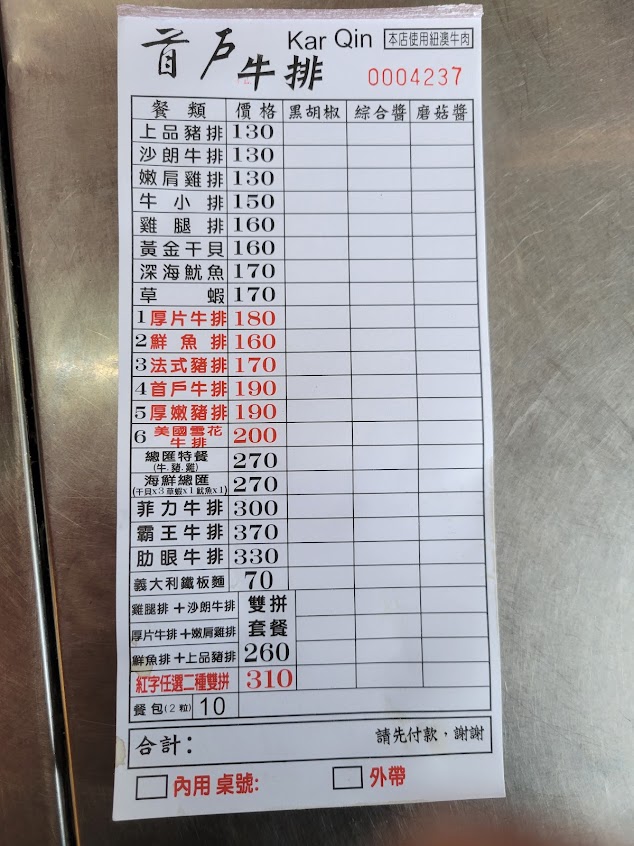 首戶牛排 Kar Qin 本店使用紐澳牛肉
0004237
餐類 價格 黑胡椒 綜合醬 磨菇醬
上品豬排 130
沙朗牛排 130
嫩肩雞排 130
牛小排 150
雞腿排 160
黃金干貝 160
深海魷魚 170
草蝦 170
1 厚片牛排 180
2 鮮魚排 160
3 法式豬排 170
4 首戶牛排 190
5 厚嫩豬排 190
6 美國雪花牛排 200
總匯特餐 270
(牛.豬.雞)
海鮮總匯 270
(干貝x3 草蝦x1 魷魚x1)
菲力牛排 300
霸王牛排 370
肋眼牛排 330
義大利鐵板麵 70
雞腿排+沙朗牛排 雙拼
厚片牛排+嫩肩雞排 套餐
鮮魚排+上品豬排 260
紅字任選二種雙拼 310
餐包(2粒) 10
合計: 請先付款,謝謝
內用 桌號: 外帶